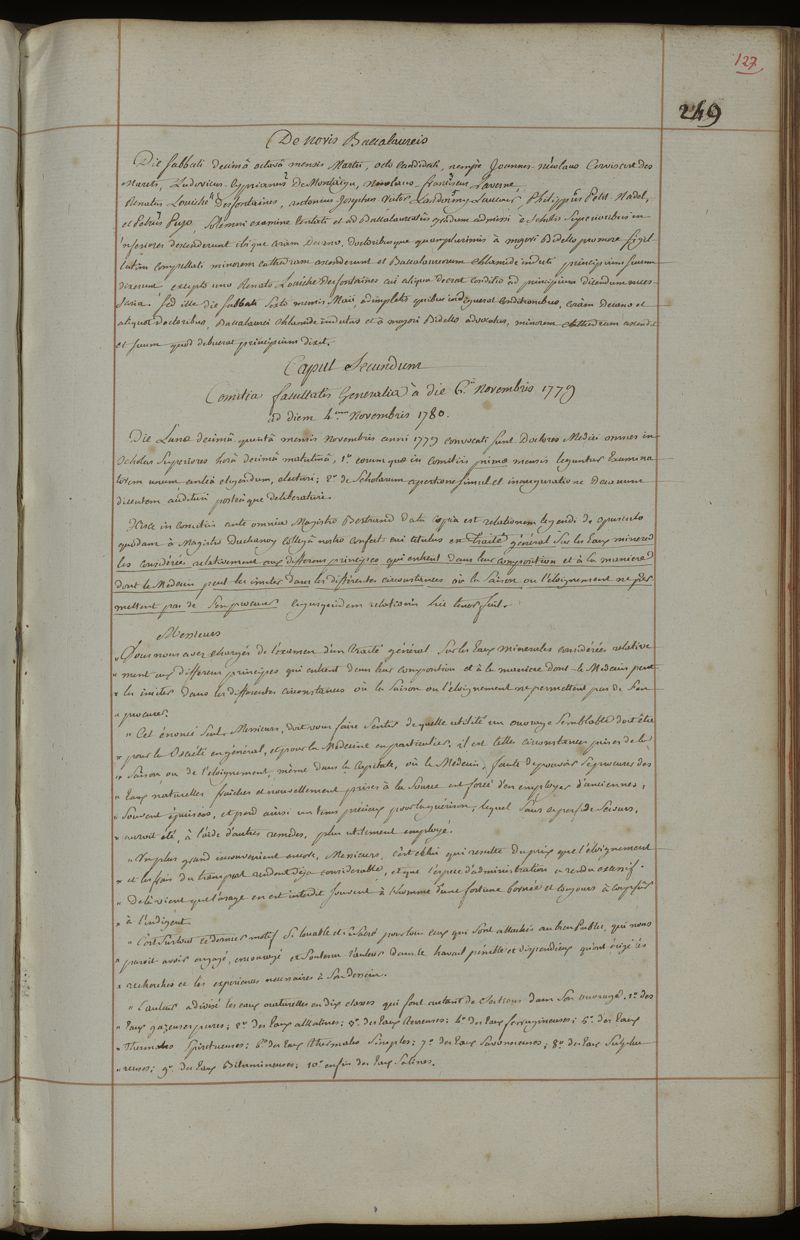 127
249
De novis Baccalaureis
Die sabbati decimâ octavâ mensis Martii, octo candidati, nempe Joannes-nicolaus Corvisart des
Marets, Ludovicus-Cyprianus De Montaigu, Nicolaus-franciscus Laverne,
Renatus Louiche Desfontaines, antonius Josephus Philippus Petit-Radel,
et Petrus Pujo, solemni examine tentati et ad Baccalaureatûs gradum admissi è Scholis superioribus in
inferiores descenderunt ibique coram Decano, doctoribusque quamplurimis à majori Bidello pro more
compellati minorem cathedram ascenderunt et Baccalaureorum chlamide induti principium suum
dixerunt, excepto uno Renato Louiche Desfontaines cui aliqua deerat conditio ad principium dicendum neces-
saria. Sed ille die sabbati sextâ mensis Maii adimpletis quibus indiguerat conditionibus, coram Decano et
aliquot Doctoribus, Baccalaurei chlamide indutus et à majori Bidello advocatus, minorem cathedram ascendit
et suum quod debuerat principium dixit.
Caput Secundum
Comitia facultatis Generalia à die 6.â novembris 1779
ad diem 4.um Novembris 1780.
Die Lunæ decimâ quintâ mensis novembris anni 1779 convocati sunt Doctores Medici omnes in
Scholas Superiores horâ decimâ matutinâ, 1.o eorum quæ in comitiis primæ mensis leguntur Examina
torem unum eligendum, electuri; 2.o de Scholarum apertione simul et inauguratione Decanum
dicentem audituri posteaque deliberaturi.
Hisce in comitiis ante omnia Magistro Bertrand data copia est relationem legendi de opusculo
quodam à Magistro Duchanoy collegâ nostro confecto cui titulus est Traité général sur les Eaux minera
les considérées relativement aux différens principes qui entrent dans leur composition et à la maniere
dont le Médecin peut les imiter dans les différentes circonstances où la Saison ou l'éloignement ne per
mettent pas de s'en procurer cujusquidem relationis hic tenor fuit.
Messieurs
« Vous nous avez chargés de l'examen d'un traité général sur les Eaux minerales considérées relative
« ment aux différens principes qui entrent dans leur composition et à la maniere dont le Médecin peut
« les imiter dans les différentes circonstances où la Saison ou l'éloignement ne permettent pas de s'en
« procurer.
« Cet énoncé seul, Messieurs, doit vous faire sentir de quelle utilité un ouvrage semblable doit être
« pour la Société en général, et pour la Médecine en particulier. il est telles circonstances prises de la
« Saison, ou de l'éloignement, même dans la Capitale, où le Médecin, faute de pouvoir se procurer des
« Eaux naturelles fraiches et nouvellement prises à la Source est forcé d'en employer d'anciennes,
« souvent épuisées, et perd ainsi un tems précieux pour la guérison, lequel
« auroit été, à l'aide d'autres remedes, plus utilement employé.
« Un plus grand inconvenient encore, Messieurs, c'est celui qui resulte du prix que l'éloignement
« et les frais du transport rendent déja considerable, et que l'espece d'administration a rendu excessif.
« De là vient que l'usage en est interdit souvent à l'homme d'une fortune bornée et toujours à coup sûr
« à l'indigent.
« C'est surtout ce dernier motif si louable et si Sacré pour tous ceux qui sont attachés au bien Public, qui nous
« paroit avoir engagé, encouragé et soutenu l'auteur dans le travail pénible et dispendieux qu'ont exigé les
« recherches et les expériences nécessaires à son dessein.
« L'auteur a divisé les eaux naturelles en dix classes qui font autant de Sections dans son ouvrage. 1.o des
« Eaux gazeuses pures; 2.o des Eaux alkalines; 3.o des Eaux terreuses; 4.o des Eaux ferrugineuses; 5.o des Eaux
« Thermales Spiritueuses; 6.o des Eaux thermales Simples; 7.o des Eaux Savoneuses; 8.o des Eaux Sulphu
« reuses; 9.o des Eaux Bitumineuses; 10.o enfin des Eaux Salines.